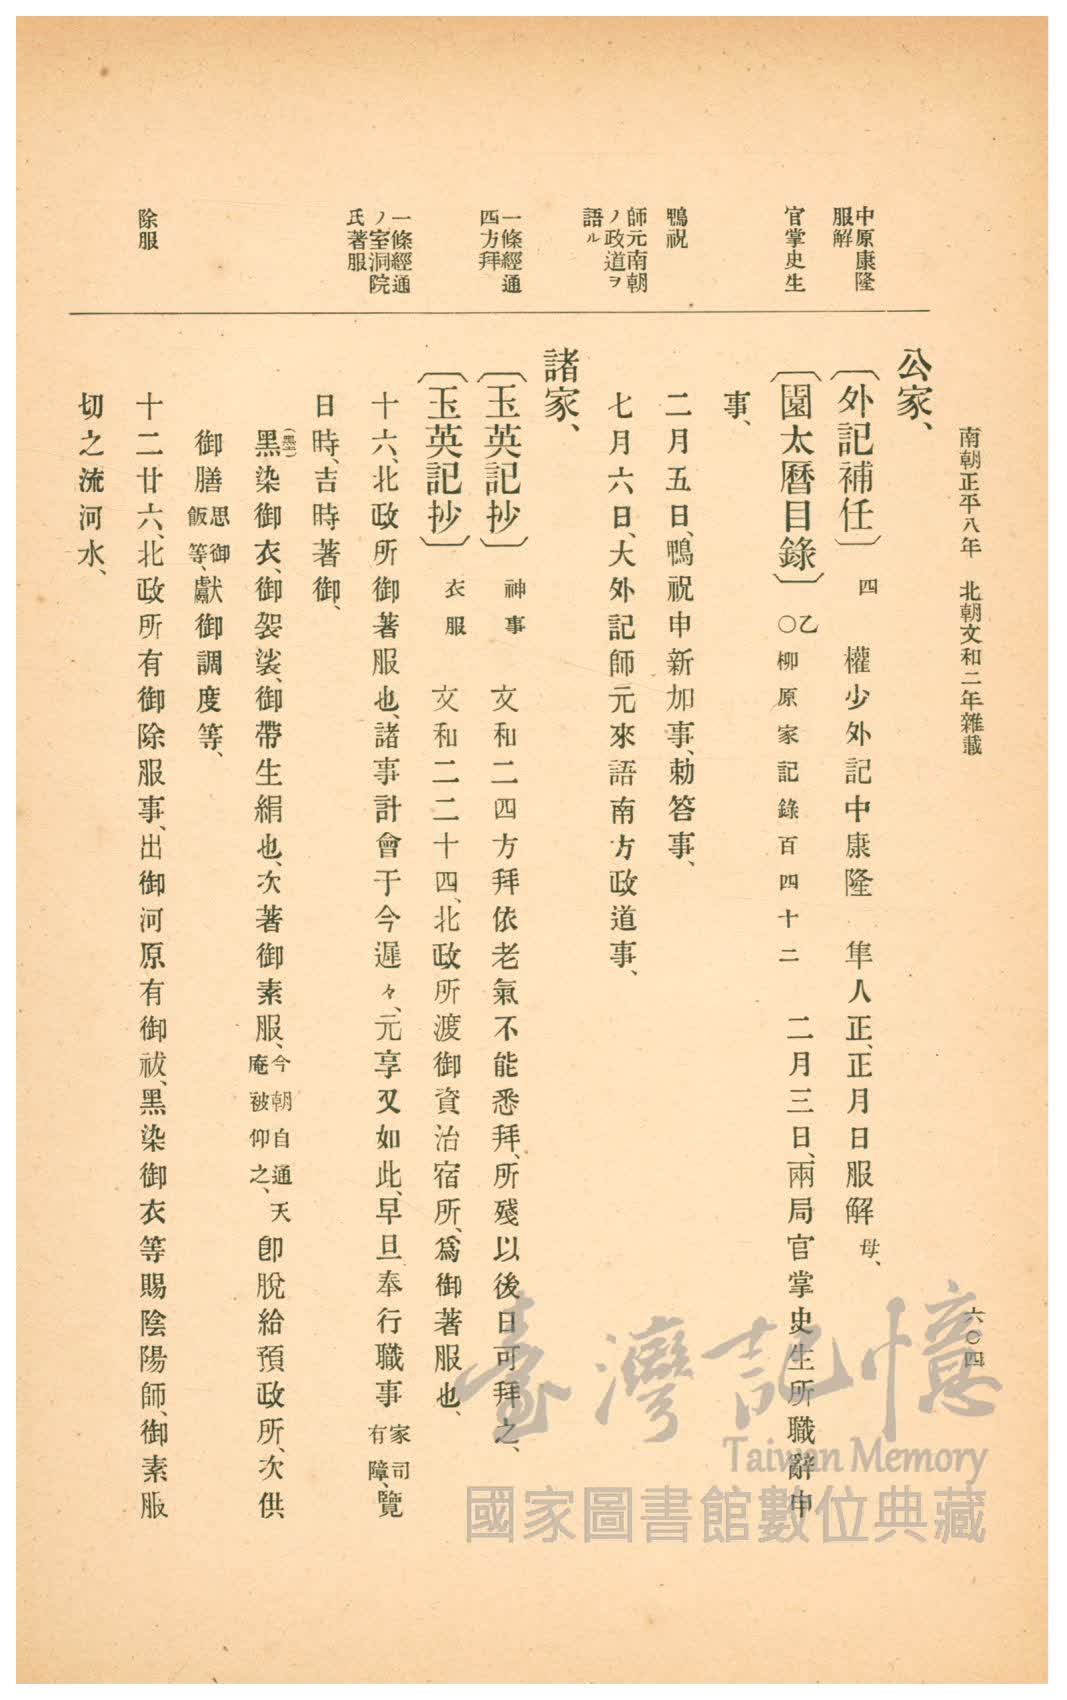 南朝正平八年 北朝文和二年雜載
六〇四
中原康隆
服解
官掌史生
鴨祝
師元南朝
ノ政道ヲ
語ル
一條經通
四方拜
一條經通
ノ室洞院
氏著服
除服
公家、
〔外記補任〕 四 權少外記中康隆 隼人正、正月日服解母、
〔園太曆目錄〕 乙〇柳原家記錄百四十二 二月三日、兩局官掌史生所職辭申
事、
二月五日、鴨祝申新加事、勅答事、
七月六日、大外記師元來語南方政道事、
諸家、
〔玉英記抄〕 神事 文和二四方拜依老氣不能悉拜、所殘以後日可拜之、
〔玉英記抄〕 衣服 文和二二十四、北政所渡御資治宿所、爲御著服也、
十六、北政所御著服也、諸事計會于今遲々、元享又如此、早旦奉行職事家司有障、覽
日時、吉時著御、
黑(墨)染御衣、御袈裟、御帶生絹也、次著御素服、今朝自通天庵被仰之、卽脫給預政所、次供
御膳思御飯等、獻御調度等、
十二廿六、北政所有御除服事、出御河原有御祓、黑染御衣等賜陰陽師、御素服
切之流河水、
臺灣記憶
Taiwan Memory
國家圖書館數位典藏